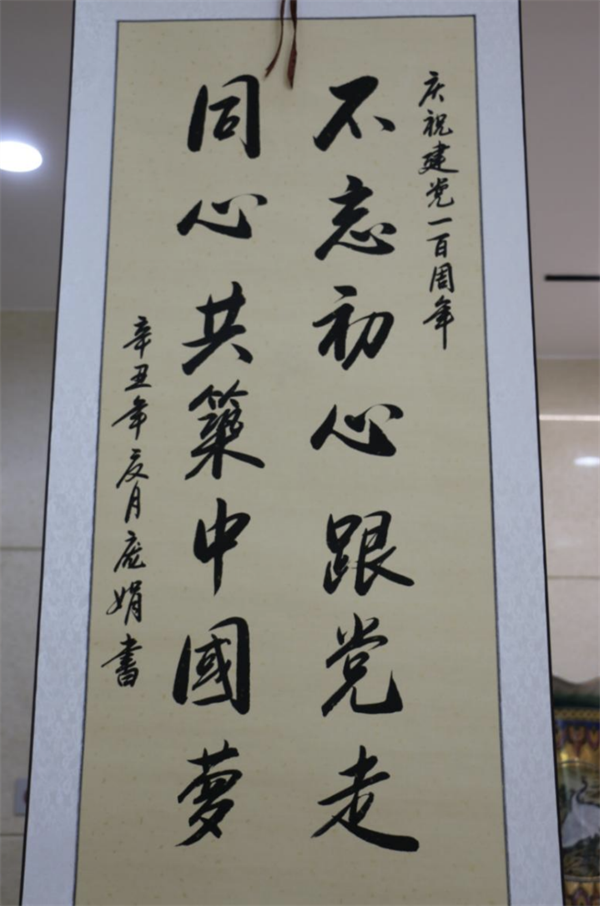 庆祝建党一百周年
不忘初心跟党走
同心共築中國夢
辛丑年夏月庞娟書